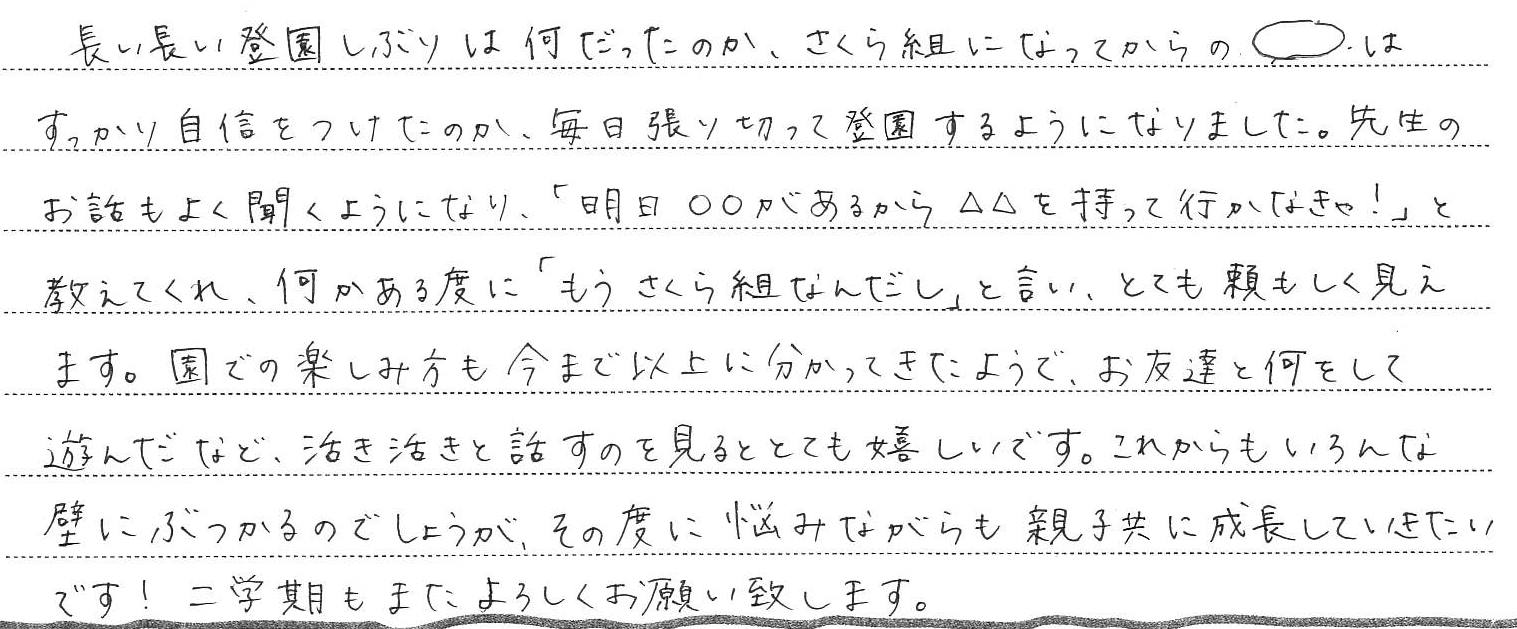 長い長い登園しぶりは何だったのか、さくら組になってからの は
すっかり自信をつけたのか、毎日張り切って登園するようになりました。先生の
お話もよく聞くようになり、「明日○○があるから△△を持って行かなきゃ！」と
教えてくれ、何かある度に「もうさくら組なんだし」と言い、とても頼もしく見え
ます。園での楽しみ方も今まで以上に分かってきたようで、お友達と何をして
遊んだなど、活き活きと話すのを見るととても嬉しいです。これからもいろんな
壁にぶつかるのでしょうが、その度に悩みながらも親子共に成長していきたい
です！二学期もまたよろしくお願い致します。